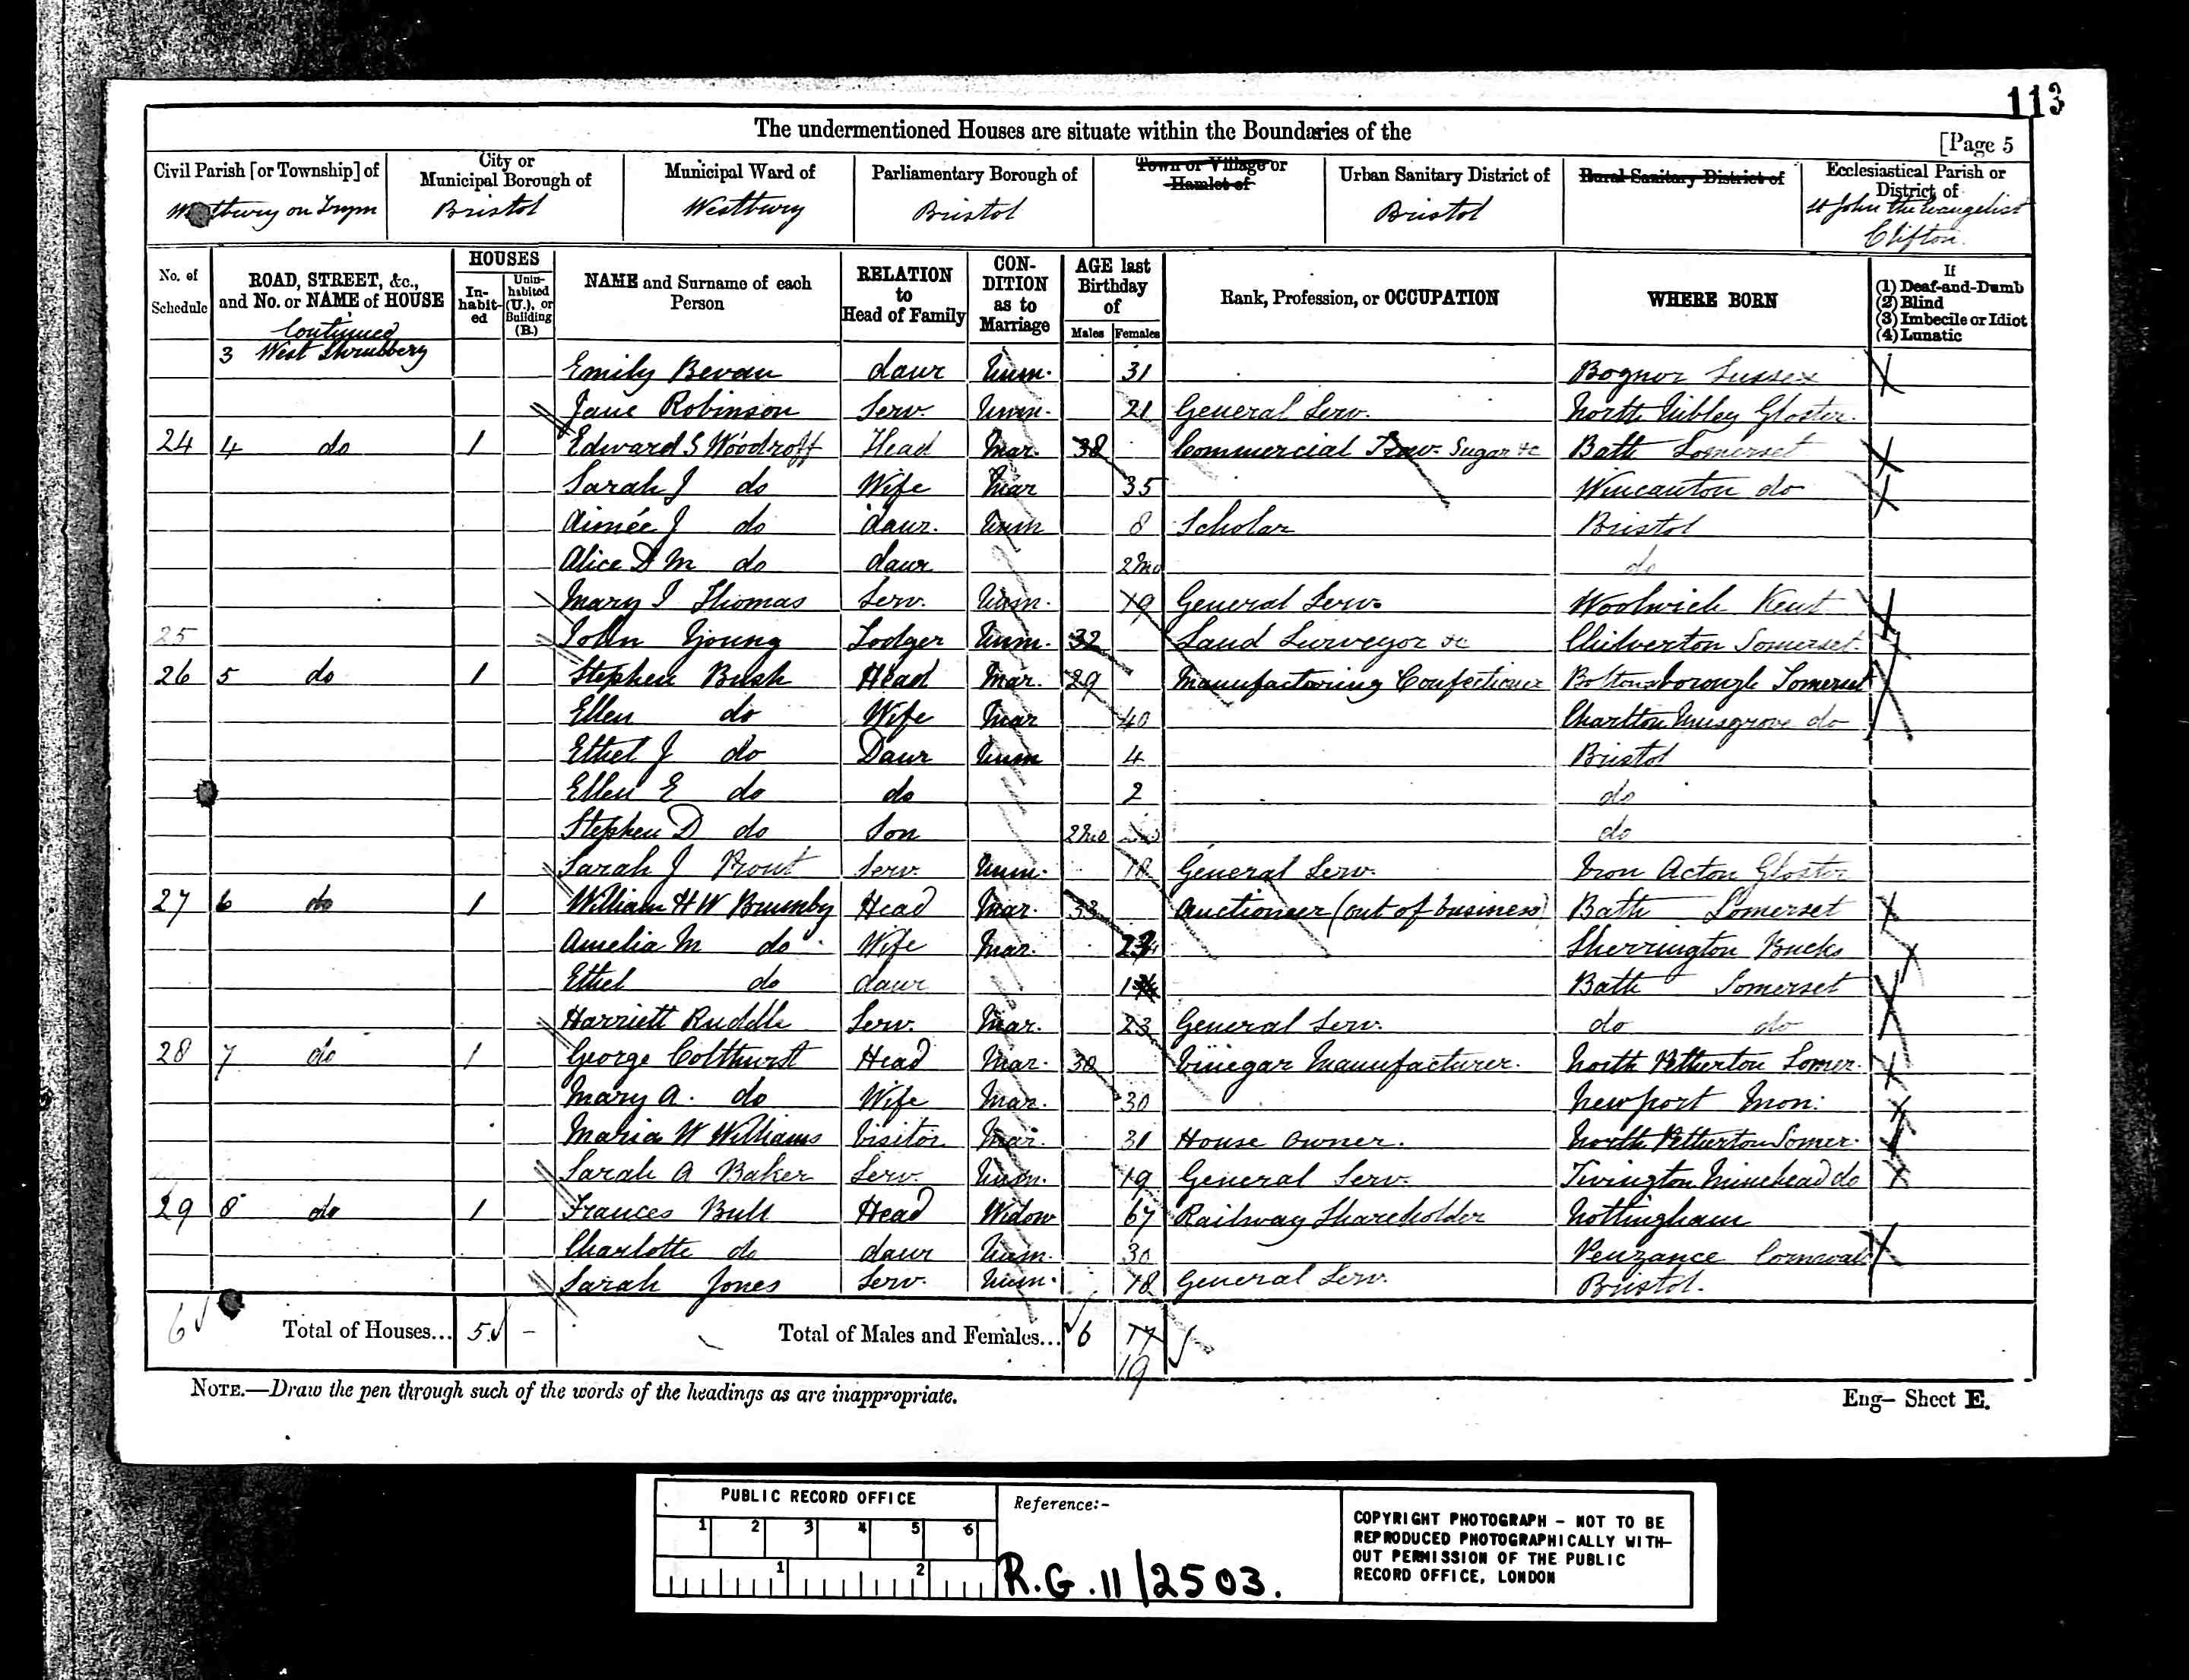 113
The undermentioned Houses are situate within the Boundaries of the
[Page 5
Civil Parish [or Township] of City or Municipal Borough of Municipal Ward of Parliamentary Borough of Town or Village or Hamlet of Urban Sanitary District of Rural Sanitary District of Ecclesiastical Parish or District of
Westbury on Trym Bristol Westbury Bristol Bristol St John the Evangelist Clifton
No. of Schedule ROAD, STREET, &c., and No. or NAME of HOUSE HOUSES Inhabited Uninhabited (U.), or Building (B.) NAME and Surname of each Person RELATION to Head of Family CONDITION as to Marriage AGE last Birthday of Males Females Rank, Profession, or OCCUPATION WHERE BORN If (1) Deaf-and-Dumb (2) Blind (3) Imbecile or Idiot (4) Lunatic
Continued
3 West Shrubbery Emily Bevan daur Unm. 31 Bognor Sussex
Jane Robinson Serv. Unm. 21 General Serv. North Nibley Gloster.
24 4 do 1 Edward S Woodroff Head Mar. 38 Commercial Trav. Sugar &c Bath Somerset
Sarah J do Wife Mar 35 Wincanton do
Aimée J do daur. Unm 8 Scholar Bristol
Alice D M do daur 2mo do
Mary I Thomas Serv. Unm. 19 General Serv. Woolwich Kent
25 John Young Lodger Unm. 32 Land Surveyor &c Chilverton Somerset.
26 5 do 1 Stephen Bush Head Mar. 29 Manufactoring Confectioner Boltonsborough Somerset
Ellen do Wife Mar 40 Charlton Musgrove do
Ethel J do Daur Unm 4 Bristol
Ellen E do do 2 do
Stephen D do Son 2mo do
Sarah J Prout Serv. Unm. 18 General Serv. Iron Acton Gloster
27 6 do 1 William H W Brumby Head Mar. 33 Auctioneer (out of business) Bath Somerset
Amelia M do Wife Mar. Sherrington Bucks
Ethel do daur 1 Bath Somerset
Harriett Ruddle Serv. Mar. 23 General Serv. do do
28 7 do 1 George Colthurst Head Mar. 30 Vinegar Manufacturer. North Petherton Somer.
Mary A. do Wife Mar. 30 Newport Mon:
Maria W Williams Visitor Mar. 31 House Owner. North Petherton Somer.
Sarah A Baker Serv. Unm. 19 General Serv. Tivington Minehead do
29 8 do 1 Frances Bull Head Widow 67 Railway Shareholder Nottingham
Charlotte do daur Unm. 30 Penzance Cornwall
Sarah Jones Serv. Unm. 18 General Serv. Bristol.
6 Total of Houses... 5 – Total of Males and Females... 6 17
19
NOTE.—Draw the pen through such of the words of the headings as are inappropriate.
Eng— Sheet E.
PUBLIC RECORD OFFICE
1 2 3 4 5 6
1 2
Reference:-
R.G. 11/2503.
COPYRIGHT PHOTOGRAPH – NOT TO BE
REPRODUCED PHOTOGRAPHICALLY WITH-
OUT PERMISSION OF THE PUBLIC
RECORD OFFICE, LONDON